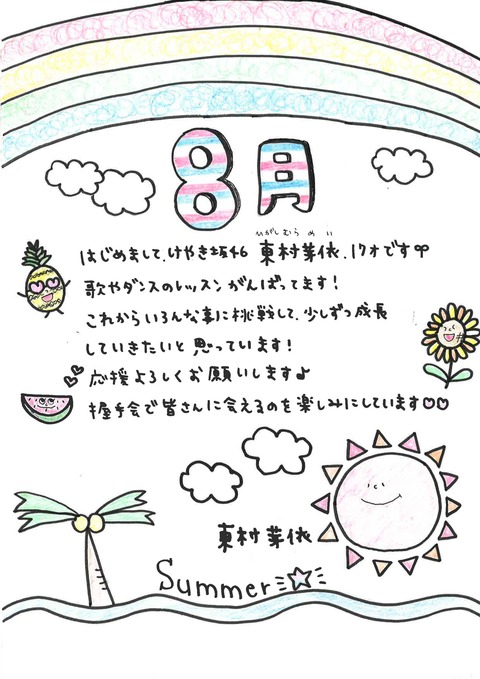 8月
ひがしむら めい
はじめまして、けやき坂46 東村芽依、17才です♡
歌やダンスのレッスンがんばってます!
これからいろんな事に挑戦して、少しずつ成長
していきたいと思っています!
応援よろしくお願いします♪
握手会で皆さんに会えるのを楽しみにしています♡♡
東村芽依
Summer☆